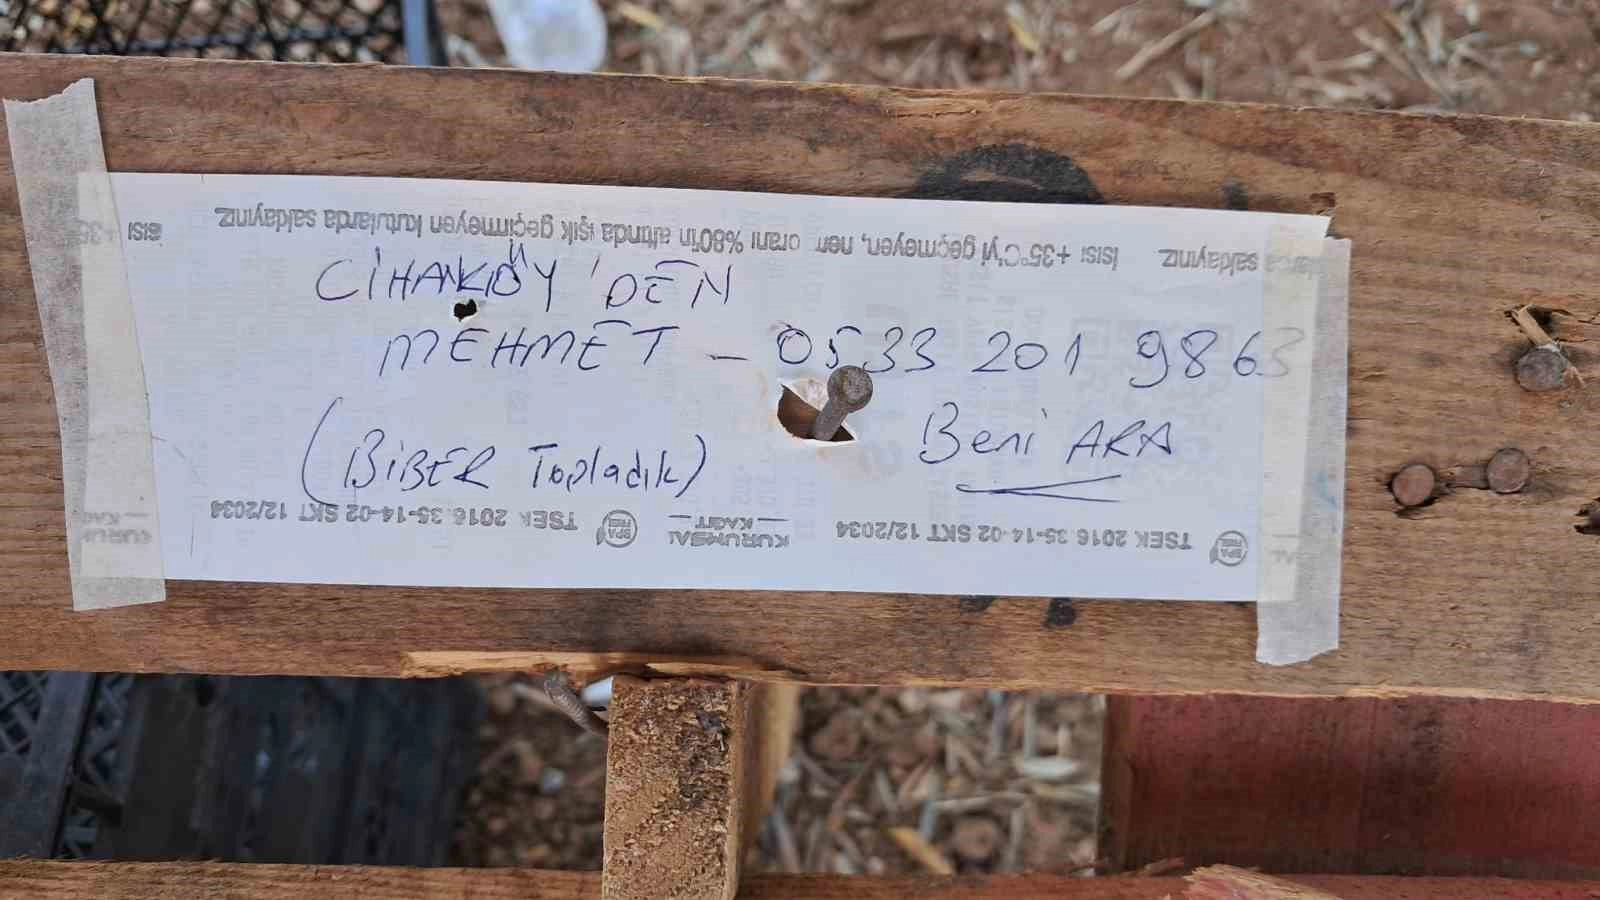 ısısı +35
saklayınız
Isısı +35°C'yi geçmeyen, nem oranı %80'in altında ışık geçirmeyen kutularda saklayınız
CİHANKÖY'DEN
MEHMET - 0533 201 9863
(BİBER Topladık)
Beni ARA
TSEK 2016.35-14-02 SKT 12/2034
BPA FREE
KURUMSAL
KAĞIT
TSEK 2016.35-14-02 SKT 12/2034
BPA FREE